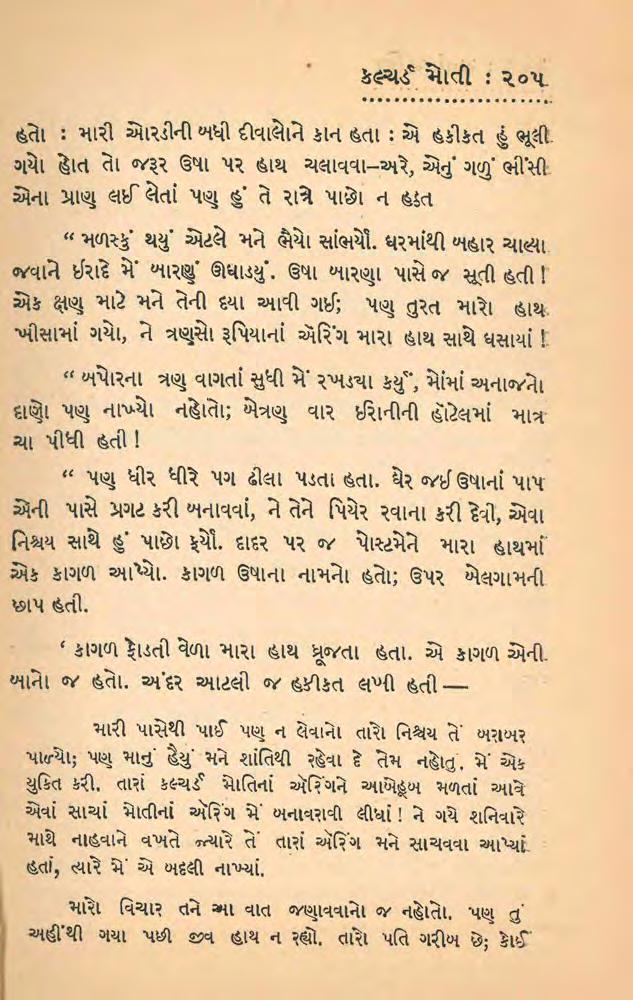 કલ્ચર્ડ મોતી : ૨૦૫
હતો : મારી ઓરડીની બધી દીવાલોને કાન હતા : એ હકીકત હું ભૂલી
ગયો હોત તો જરૂર ઉષા પર હાથ ચલાવવા–અરે, એનું ગળું ભીંસી
એના પ્રાણ લઈ લેતાં પણ હું તે રાત્રે પાછો ન હઠત
“ મળસ્કું થયું એટલે મને ભૈયો સાંભર્યો. ઘરમાંથી બહાર ચાલ્યા
જવાને ઈરાદે મેં બારણું ઊઘાડયું. ઉષા બારણા પાસે જ સૂતી હતી !
એક ક્ષણ માટે મને તેની દયા આવી ગઈ; પણ તુરત મારો હાથ
ખીસામાં ગયો, ને ત્રણસો રૂપિયાનાં ઍરિંગ મારા હાથ સાથે ઘસાયાં !
“ બપોરના ત્રણ વાગતાં સુધી મેં રખડ્યા કર્યું, મોંમાં અનાજનો
દાણો પણ નાખ્યો નહોતો; બેત્રણ વાર ઈરાનીની હૉટેલમાં માત્ર
ચા પીધી હતી !
“ પણ ધીર ધીરે પગ ઢીલા પડતા હતા. ઘેર જઈ ઉષાનાં પાપ
એની પાસે પ્રગટ કરી બનાવવાં, ને તેને પિયેર રવાના કરી દેવી, એવા
નિશ્ચય સાથે હું પાછો ફર્યો. દાદર પર જ પોસ્ટમેને મારા હાથમાં
એક કાગળ આપ્યો. કાગળ ઉષાના નામનો હતો; ઉપર બેલગામની
છાપ હતી.
‘ કાગળ ફોડતી વેળા મારા હાથ ધ્રૂજતા હતા. એ કાગળ એની
બાનો જ હતો. અંદર આટલી જ હકીકત લખી હતી —
મારી પાસેથી પાઈ પણ ન લેવાનો તારો નિશ્ચય તેં બરાબર
પાળ્યો; પણ માનું હૈયું મને શાંતિથી રહેવા દે તેમ નહોતું. મેં એક
યુકિત કરી. તારાં કલ્ચર્ડ મોતિનાં ઍરિંગને આબેહૂબ મળતાં આવે
એવાં સાચાં મોતીનાં ઍરિંગ મેં બનાવરાવી લીધાં ! ને ગયે શનિવારે
માથે નાહવાને વખતે જ્યારે તેં તારાં ઍરિંગ મને સાચવવા આપ્યાં
હતાં, ત્યારે મેં એ બદલી નાખ્યાં.
મારો વિચાર તને આ વાત જણાવવાનો જ નહોતો. પણ તું
અહીંથી ગયા પછી જીવ હાથ ન રહ્યો. તારો પતિ ગરીબ છે; કોઈ